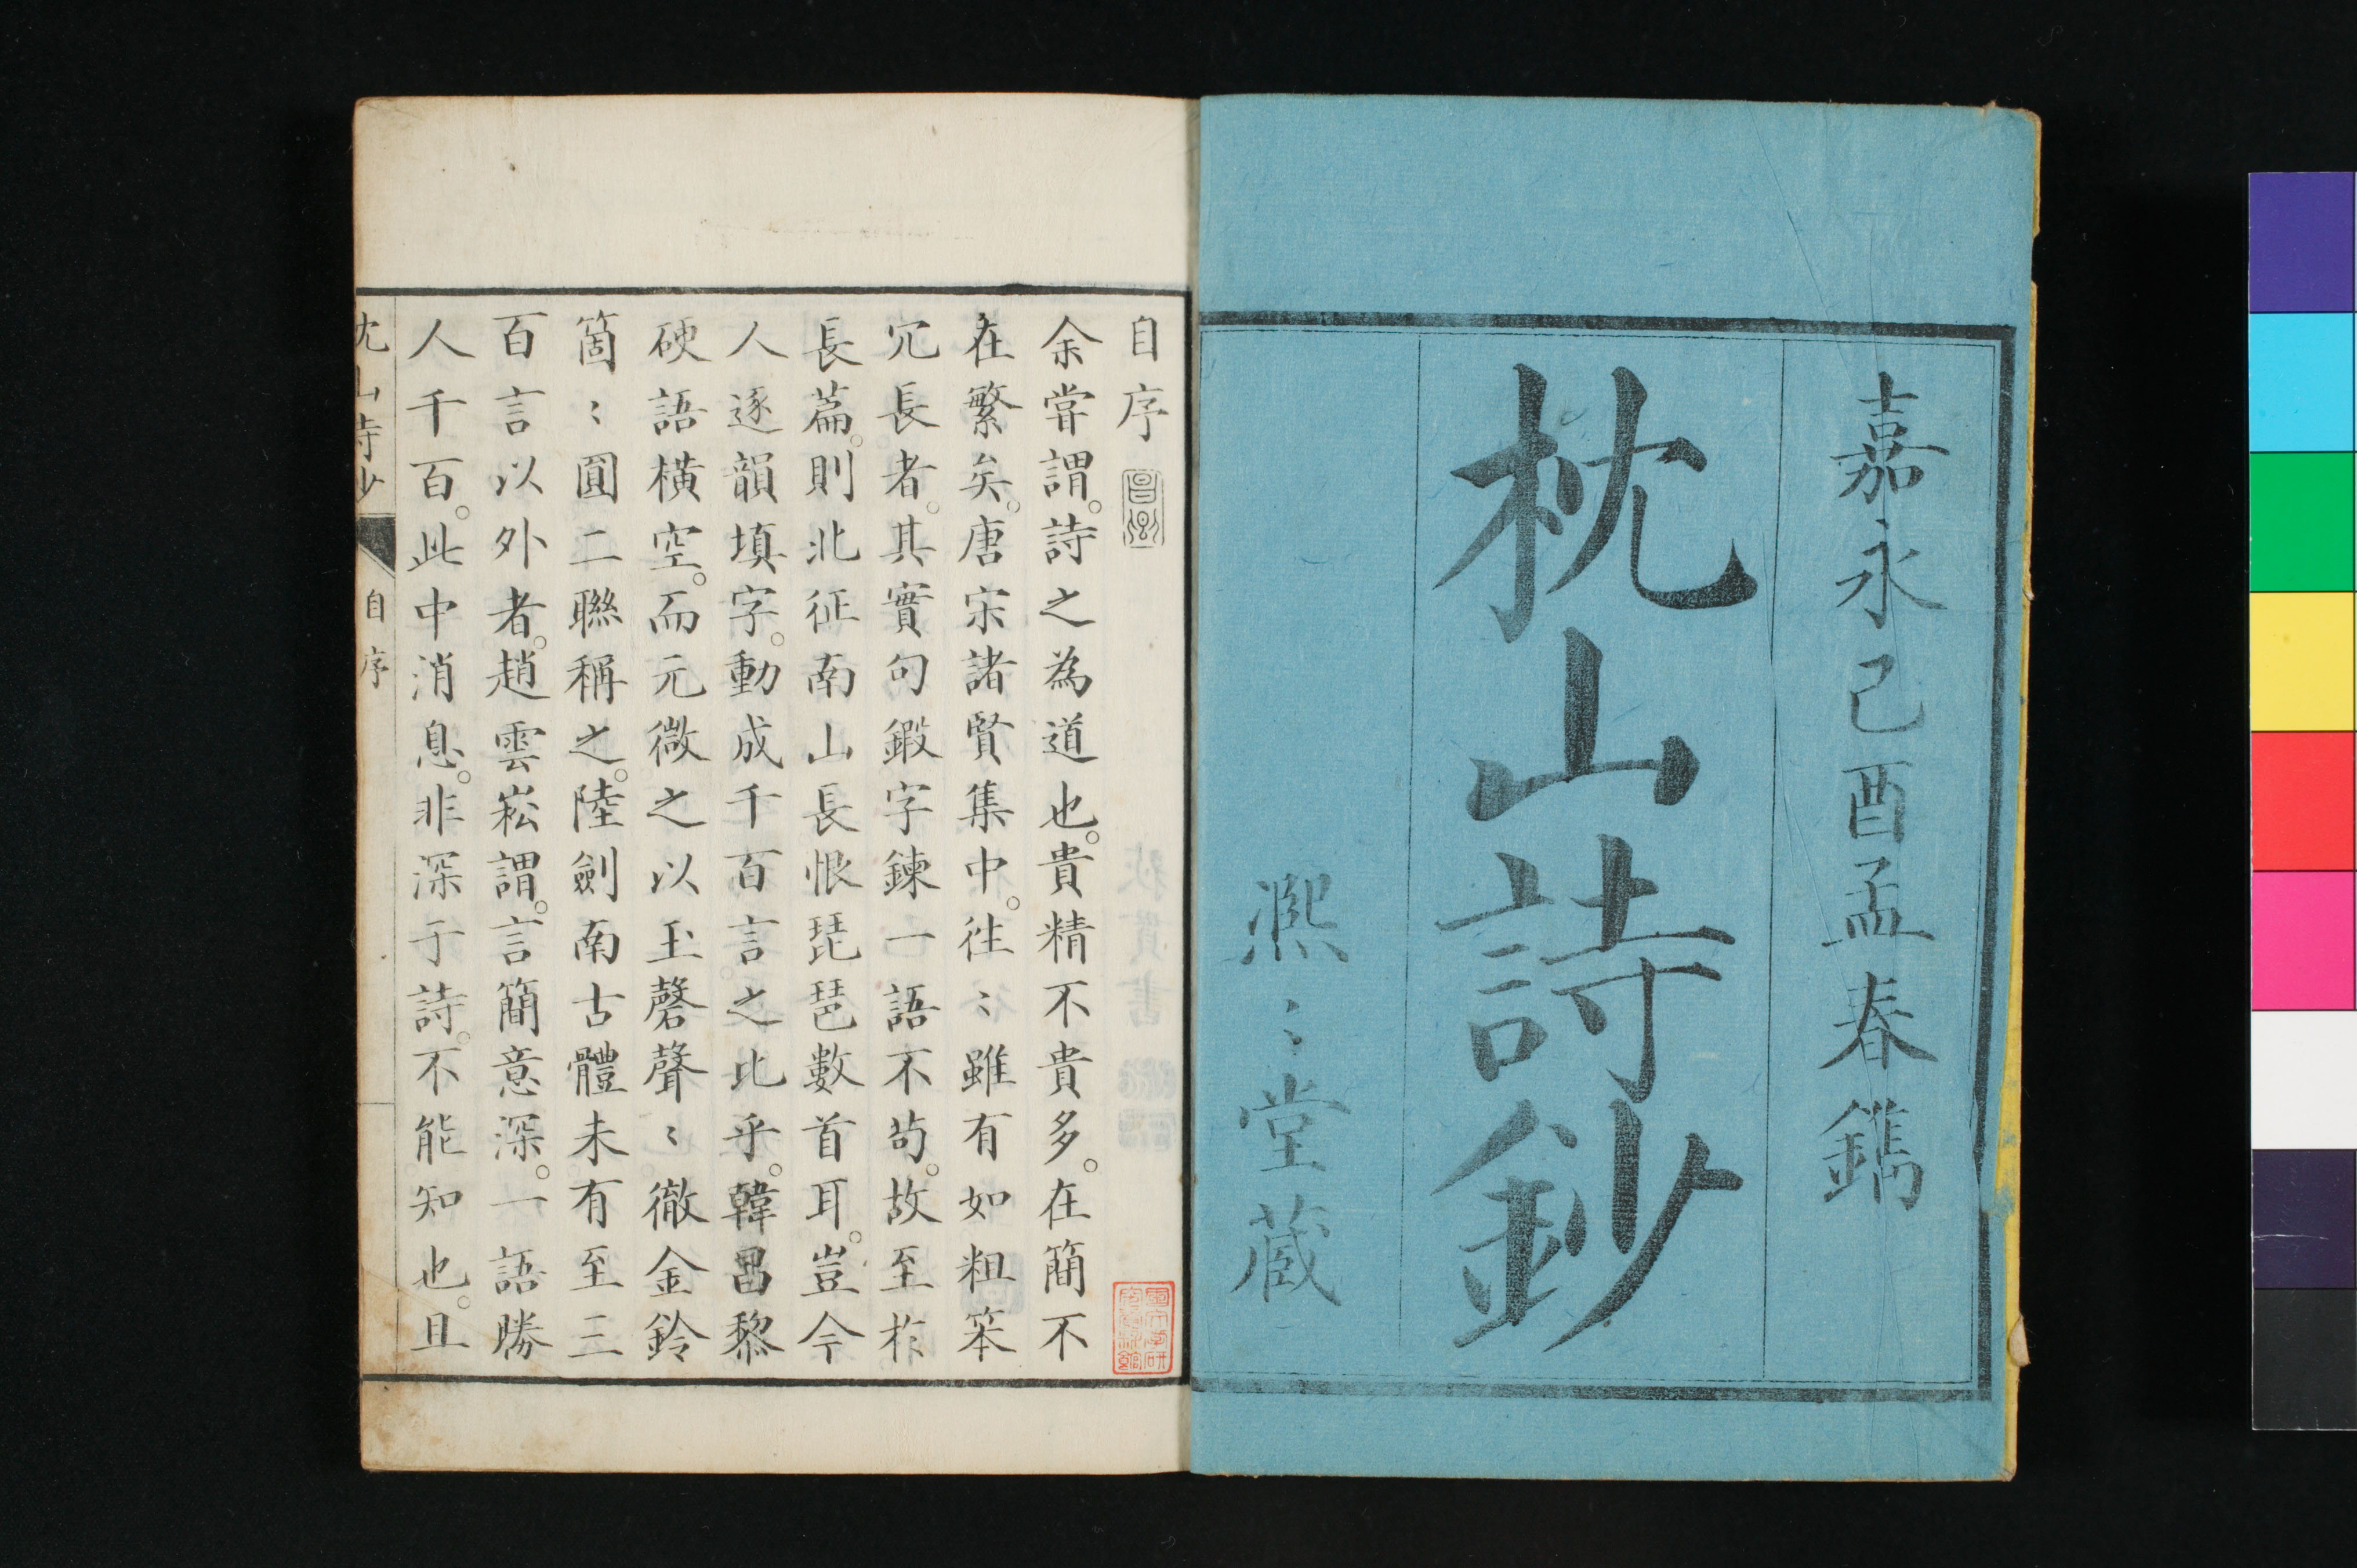 嘉永己酉孟春鐫
枕山詩鈔
熙〻堂藏
自序
余甞謂。詩之為道也。貴精不貴多。在簡不
在繁矣。唐宋諸賢集中。徃〻雖有如粗笨
冗長者。其實句鍜字鍊一語不茍。故至柞
長篇。則北征南山長恨琵琶數首耳。豈今
人逐韻填字。動成千百言之比乎。韓昌黎
硬語橫空。而元微之以玉磬聲〻徹金鈴
箇〻圓二聯稱之。陸劍南古體未有至三
百言以外者。趙雲崧謂。言簡意深。一語勝
人千百。此中消息。非深于詩。不能知也。且
枕山詩鈔
自序